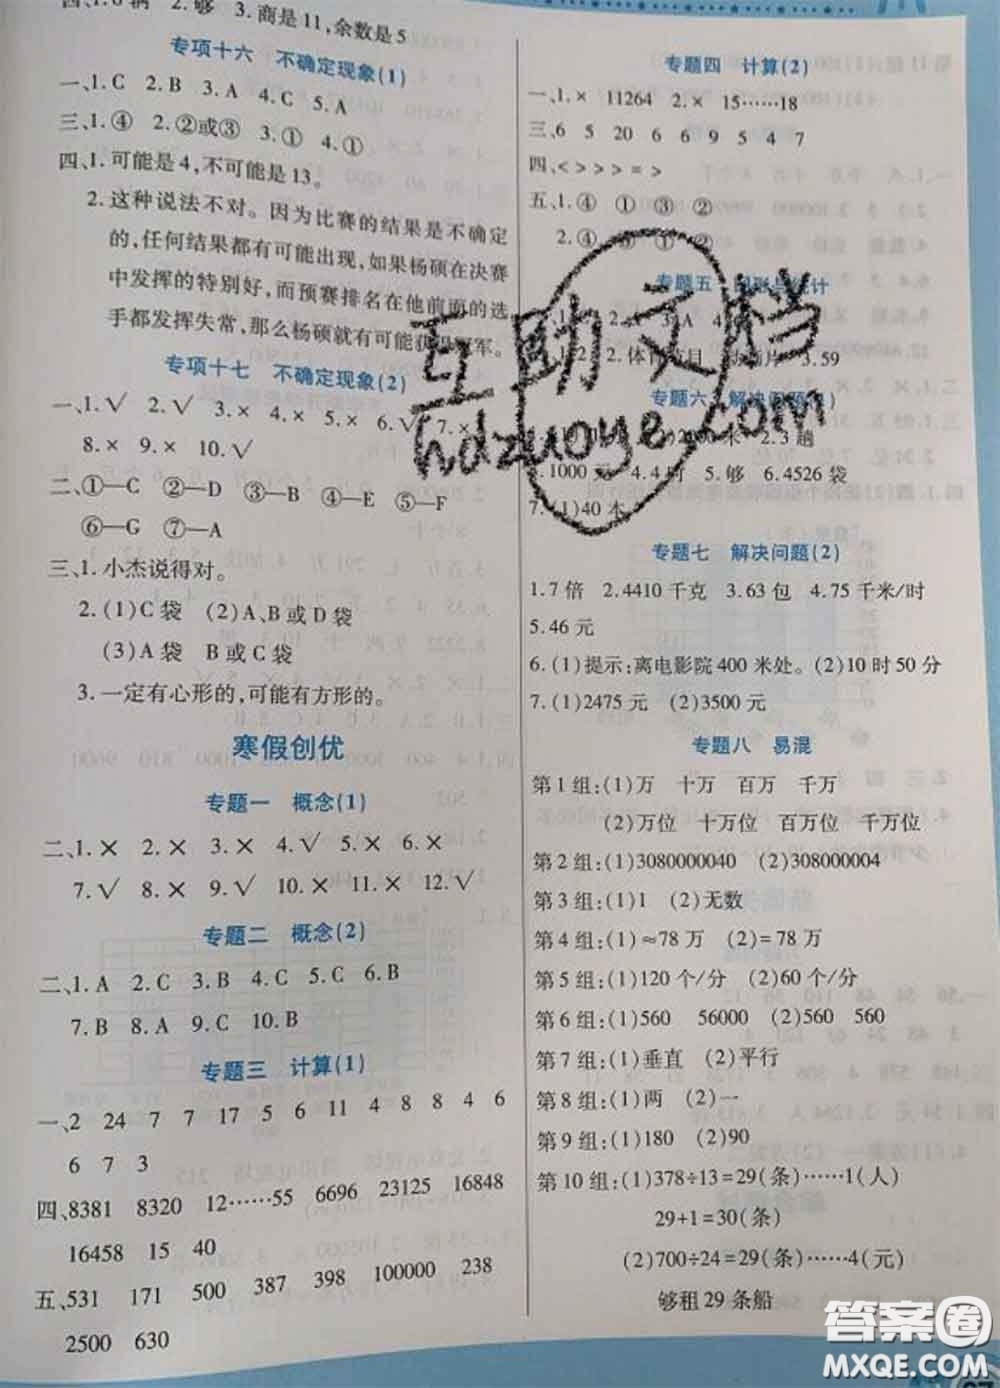 四、1.6 辆　2.够　3.商是11,余数是5
专项十六　不确定现象(1)
一、1.C　2.B　3.A　4.C　5.A
三、1.④　2.②或③　3.①　4.①
四、1.可能是4,不可能是13。
2.这种说法不对。因为比赛的结果是不确定
的,任何结果都有可能出现,如果杨硕在决赛
中发挥的特别好,而预赛排名在他前面的选
手都发挥失常,那么杨硕就有可能获得冠军。
专项十七　不确定现象(2)
一、1.√　2.√　3.×　4.×　5.×　6.√　7.×
8.×　9.×　10.√
二、①—C　②—D　③—B　④—E　⑤—F
⑥—G　⑦—A
三、1.小杰说得对。
2.(1)C袋　(2)A、B或D袋
(3)A袋　B或C袋
3.一定有心形的,可能有方形的。
寒假创优
专题一　概念(1)
二、1.×　2.×　3.×　4.√　5.×　6.×
7.√　8.×　9.√　10.×　11.×　12.√
专题二　概念(2)
二、1.A　2.C　3.B　4.C　5.C　6.B
7.B　8.A　9.C　10.B
专题三　计算(1)
一、2　24　7　7　17　5　6　11　4　8　8　4　6
6　7　3
四、8381　8320　12……55　6696　23125　16848
16458　15　40
五、531　171　500　387　398　100000　238
2500　630
专题四　计算(2)
一、1.×　11264　2.×　15……18
三、6　5　20　6　6　9　5　4　7
四、<　>　>　>　=　>
五、1.④　①　③　②
2.④　①　②
专题五　图形与统计
2.A　3.A　4
2.体育节目　动画片　3.59
专题六　解决问题(1)
米　2.3趟
3.1000元　4.4时　5.够　6.4526袋
7.(1)40本
专题七　解决问题(2)
1.7倍　2.4410千克　3.63包　4.75千米/时
5.46元
6.(1)提示:离电影院400米处。(2)10时50分
7.(1)2475元　(2)3500元
专题八　易混
第1组:(1)万　十万　百万　千万
(2)万位　十万位　百万位　千万位
第2组:(1)3080000040　(2)308000004
第3组:(1)1　(2)无数
第4组:(1)≈78万　(2)=78万
第5组:(1)120个/分　(2)60个/分
第6组:(1)560　56000　(2)560　560
第7组:(1)垂直　(2)平行
第8组:(1)两　(2)一
第9组:(1)180　(2)90
第10组:(1)378÷13=29(条)……1(人)
29+1=30(条)
(2)700÷24=29(条)……4(元)
够租29条船
互助文档
hdzuoye.com
答案圈
MXQE.COM